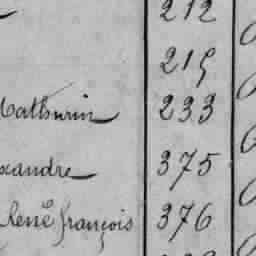 212
215
Mathurin 233
xandre 375
René françois 376